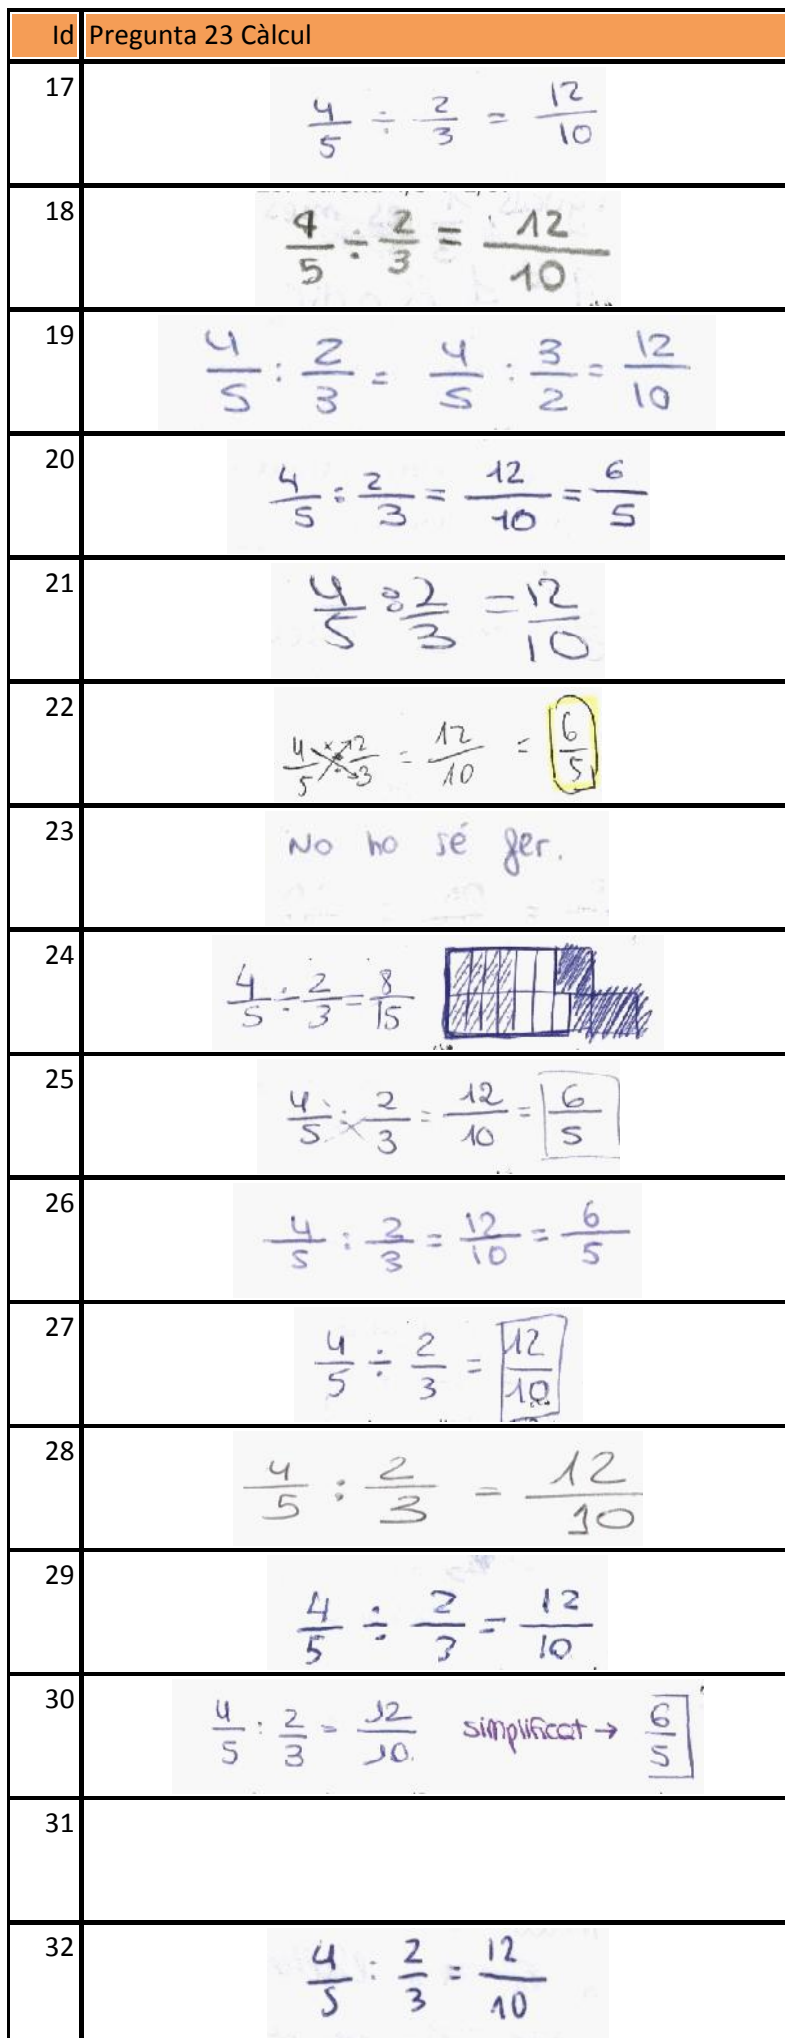 Id Pregunta 23 Càlcul
17 4/5 ÷ 2/3 = 12/10
18 4/5 ÷ 2/3 = 12/10
19 4/5 : 2/3 = 4/5 : 3/2 = 12/10
20 4/5 : 2/3 = 12/10 = 6/5
21 4/5 : 2/3 = 12/10
22 4/5 ÷ 2/3 = 12/10 = 6/5
23 No ho sé fer.
24 4/5 ÷ 2/3 = 8/15
25 4/5 : 2/3 = 12/10 = 6/5
26 4/5 : 2/3 = 12/10 = 6/5
27 4/5 ÷ 2/3 = 12/10
28 4/5 : 2/3 = 12/10
29 4/5 ÷ 2/3 = 12/10
30 4/5 : 2/3 = 12/10 simplificat → 6/5
31
32 4/5 : 2/3 = 12/10